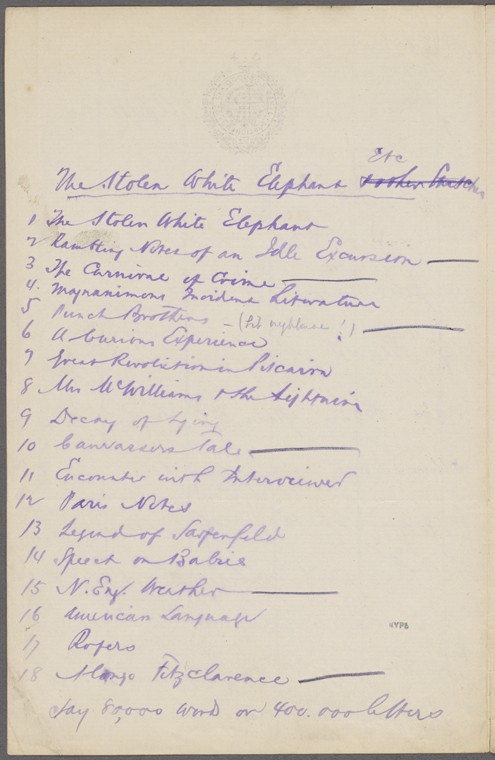 Etc
The Stolen White Elephant & other Sketches
1 The Stolen White Elephant
2 Rambling Notes of an Idle Excursion —
3 The Carnival of Crime —
4. Magnanimous Incident Literature
5 Punch Brothers — (Lit nightmare!) —
6 A Curious Experience
7 Great Revolution in Pitcairn
8 Mrs McWilliams & the Lightning
9 Decay of Lying
10 Canvassers Tale —
11 Encounter with Interviewer
12 Paris Notes
13 Legend of Sagenfeld
14 Speech on Babies
15 N. Eng. Weather —
16 American Language
17 Rogers
18 Alonzo Fitz Clarence —
Say 80,000 words or 400.000 letters
NYPL